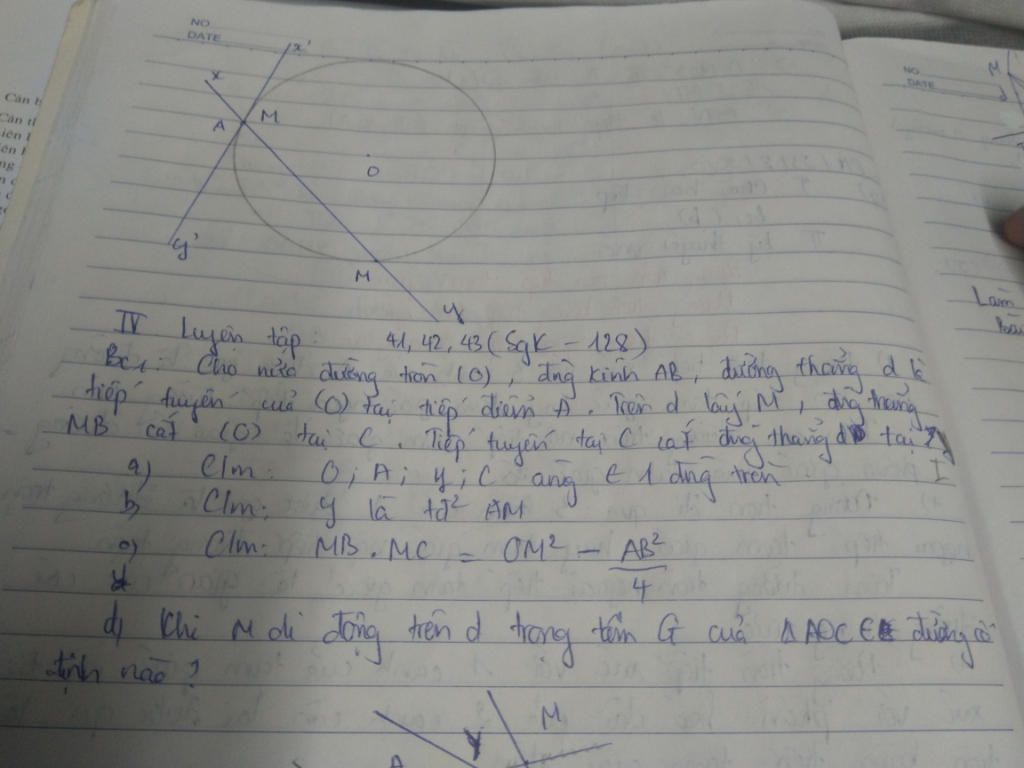 NO
DATE
x'
x
A
M
O
y'
M
y
IV Luyện tập: 41, 42, 43 (SgK - 128)
Bài 1: Cho nửa đường tròn (O), đng kính AB, đường thẳng d là
tiếp tuyến của (O) tại tiếp điểm A. Trên d lấy M, đng thẳng
MB cắt (O) tại C. Tiếp tuyến tại C cắt đng thẳng d tại
I
a) C/m: O; A; y; C cùng ∈ 1 đng tròn
b) C/m: y là tđ² AM
c) C/m: MB . MC = OM² - AB²/4
d) Khi M di động trên d trọng tâm G của Δ AOC ∈ đường cố
định nào?
M
A
NO
DATE
M
Làm